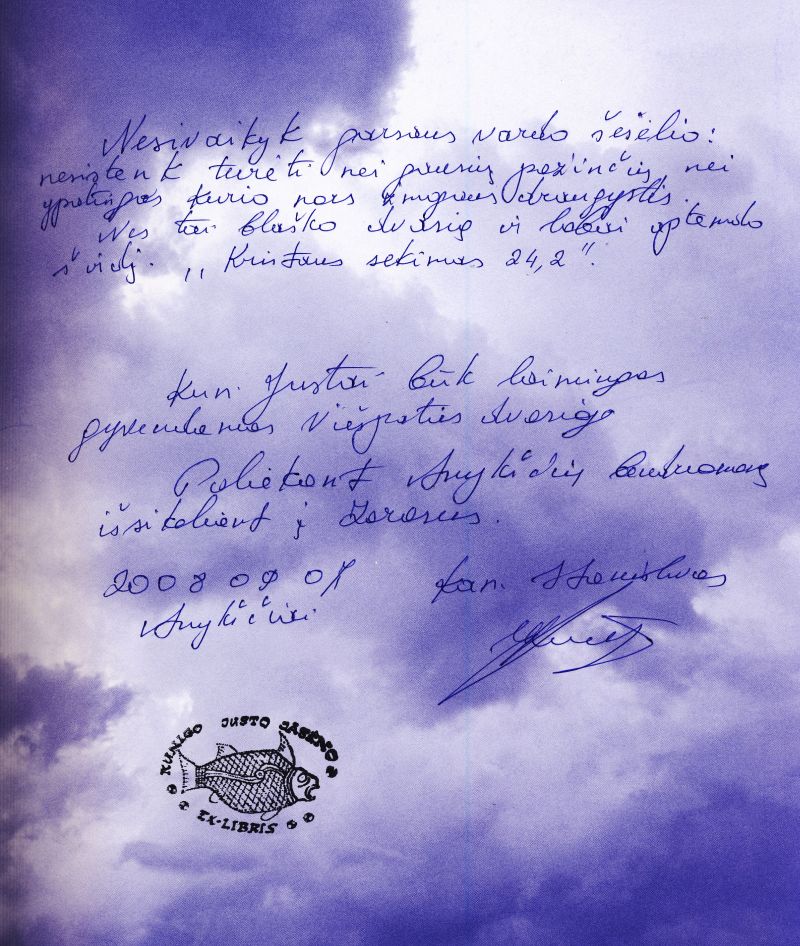 Nesivaikyk garsaus vardo šešėlio:
nesistenk turėti nei gausių pažinčių, nei
ypatingos kurio nors žmogaus draugystės.
Nes tai blaško dvasią ir labai aptemdo
širdį. „Kristaus sekimas 24,2".
Kun. Justai būk laimingas
gyvendamas Viešpaties dvasioje
Paliekant Anykščių bendruomenę
išsikeliant į Zarasus.
2008 09 07
Kan. Stanislovas
Anykščiai
KUNIGO JUSTO JASĖNO
EX-LIBRIS